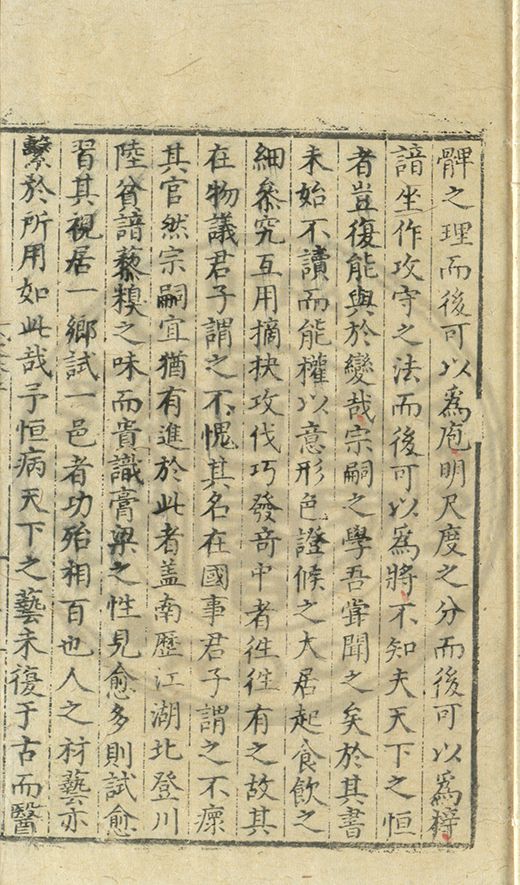 髀之理而後可以為庖明尺度之分而後可以為梓
諳坐作攻守之法而後可以為將不知夫天下之恒
者豈復能與於變哉宗嗣之學吾甞聞之矣於其書
未始不讀而能權以意形色證候之大居起食飲之
細叅究互用摘抉攻伐巧發竒中者徃徃有之故其
在物議君子謂之不愧其名在國事君子謂之不瘝
其官然宗嗣宜猶有進於此者盖南歷江湖北登川
陸貧諳藜糗之味而貴識膏粱之性見愈多則試愈
習其視居一鄉試一邑者功殆相百也人之材藝亦
繫於所用如此哉予恒病天下之藝未復于古而醫